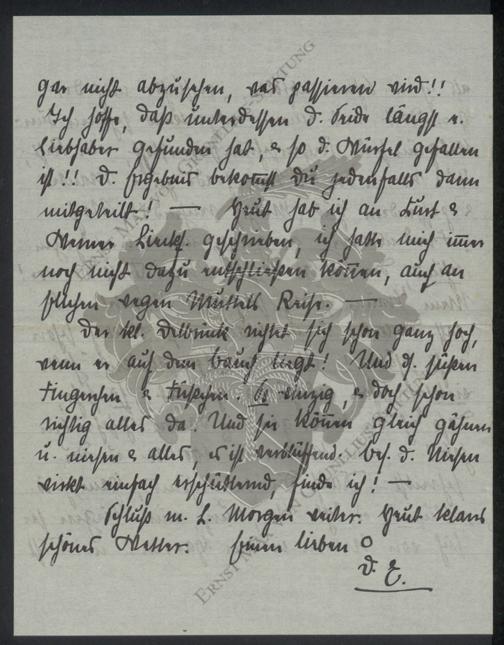 gar nicht abzusehen, was passieren wird!!
Ich hoffe, daß unterdessen d. Seide längst e.
Liebhaber gefunden hat, & so d. Würfel gefallen
ist!! D. Ergebnis bekommst du jedenfalls dann
mitgeteilt! — Heut hab ich an Kurt &
Werner geschrieben, ich hatte mich immer
noch nicht dazu entschließen können, auch an
wegen Muttels Reise. —
Der kl. Delbrück richtet sich schon ganz hoch,
wenn er auf dem Bauch liegt! Und d. süßen
Fingerchen & Füßchen. So winzig, & doch schon
richtig alles da. Und sie können gleich gähnen
u. niesen & alles, es ist verblüffend. Bes. d. Niesen
wirkt einfach erschütternd, finde ich! —
Schluß m. L. Morgen weiter. Heut klares
schönes Wetter. Einen lieben O
D. E.
ERNST MAX VON CORNELIUS-STIFTUNG